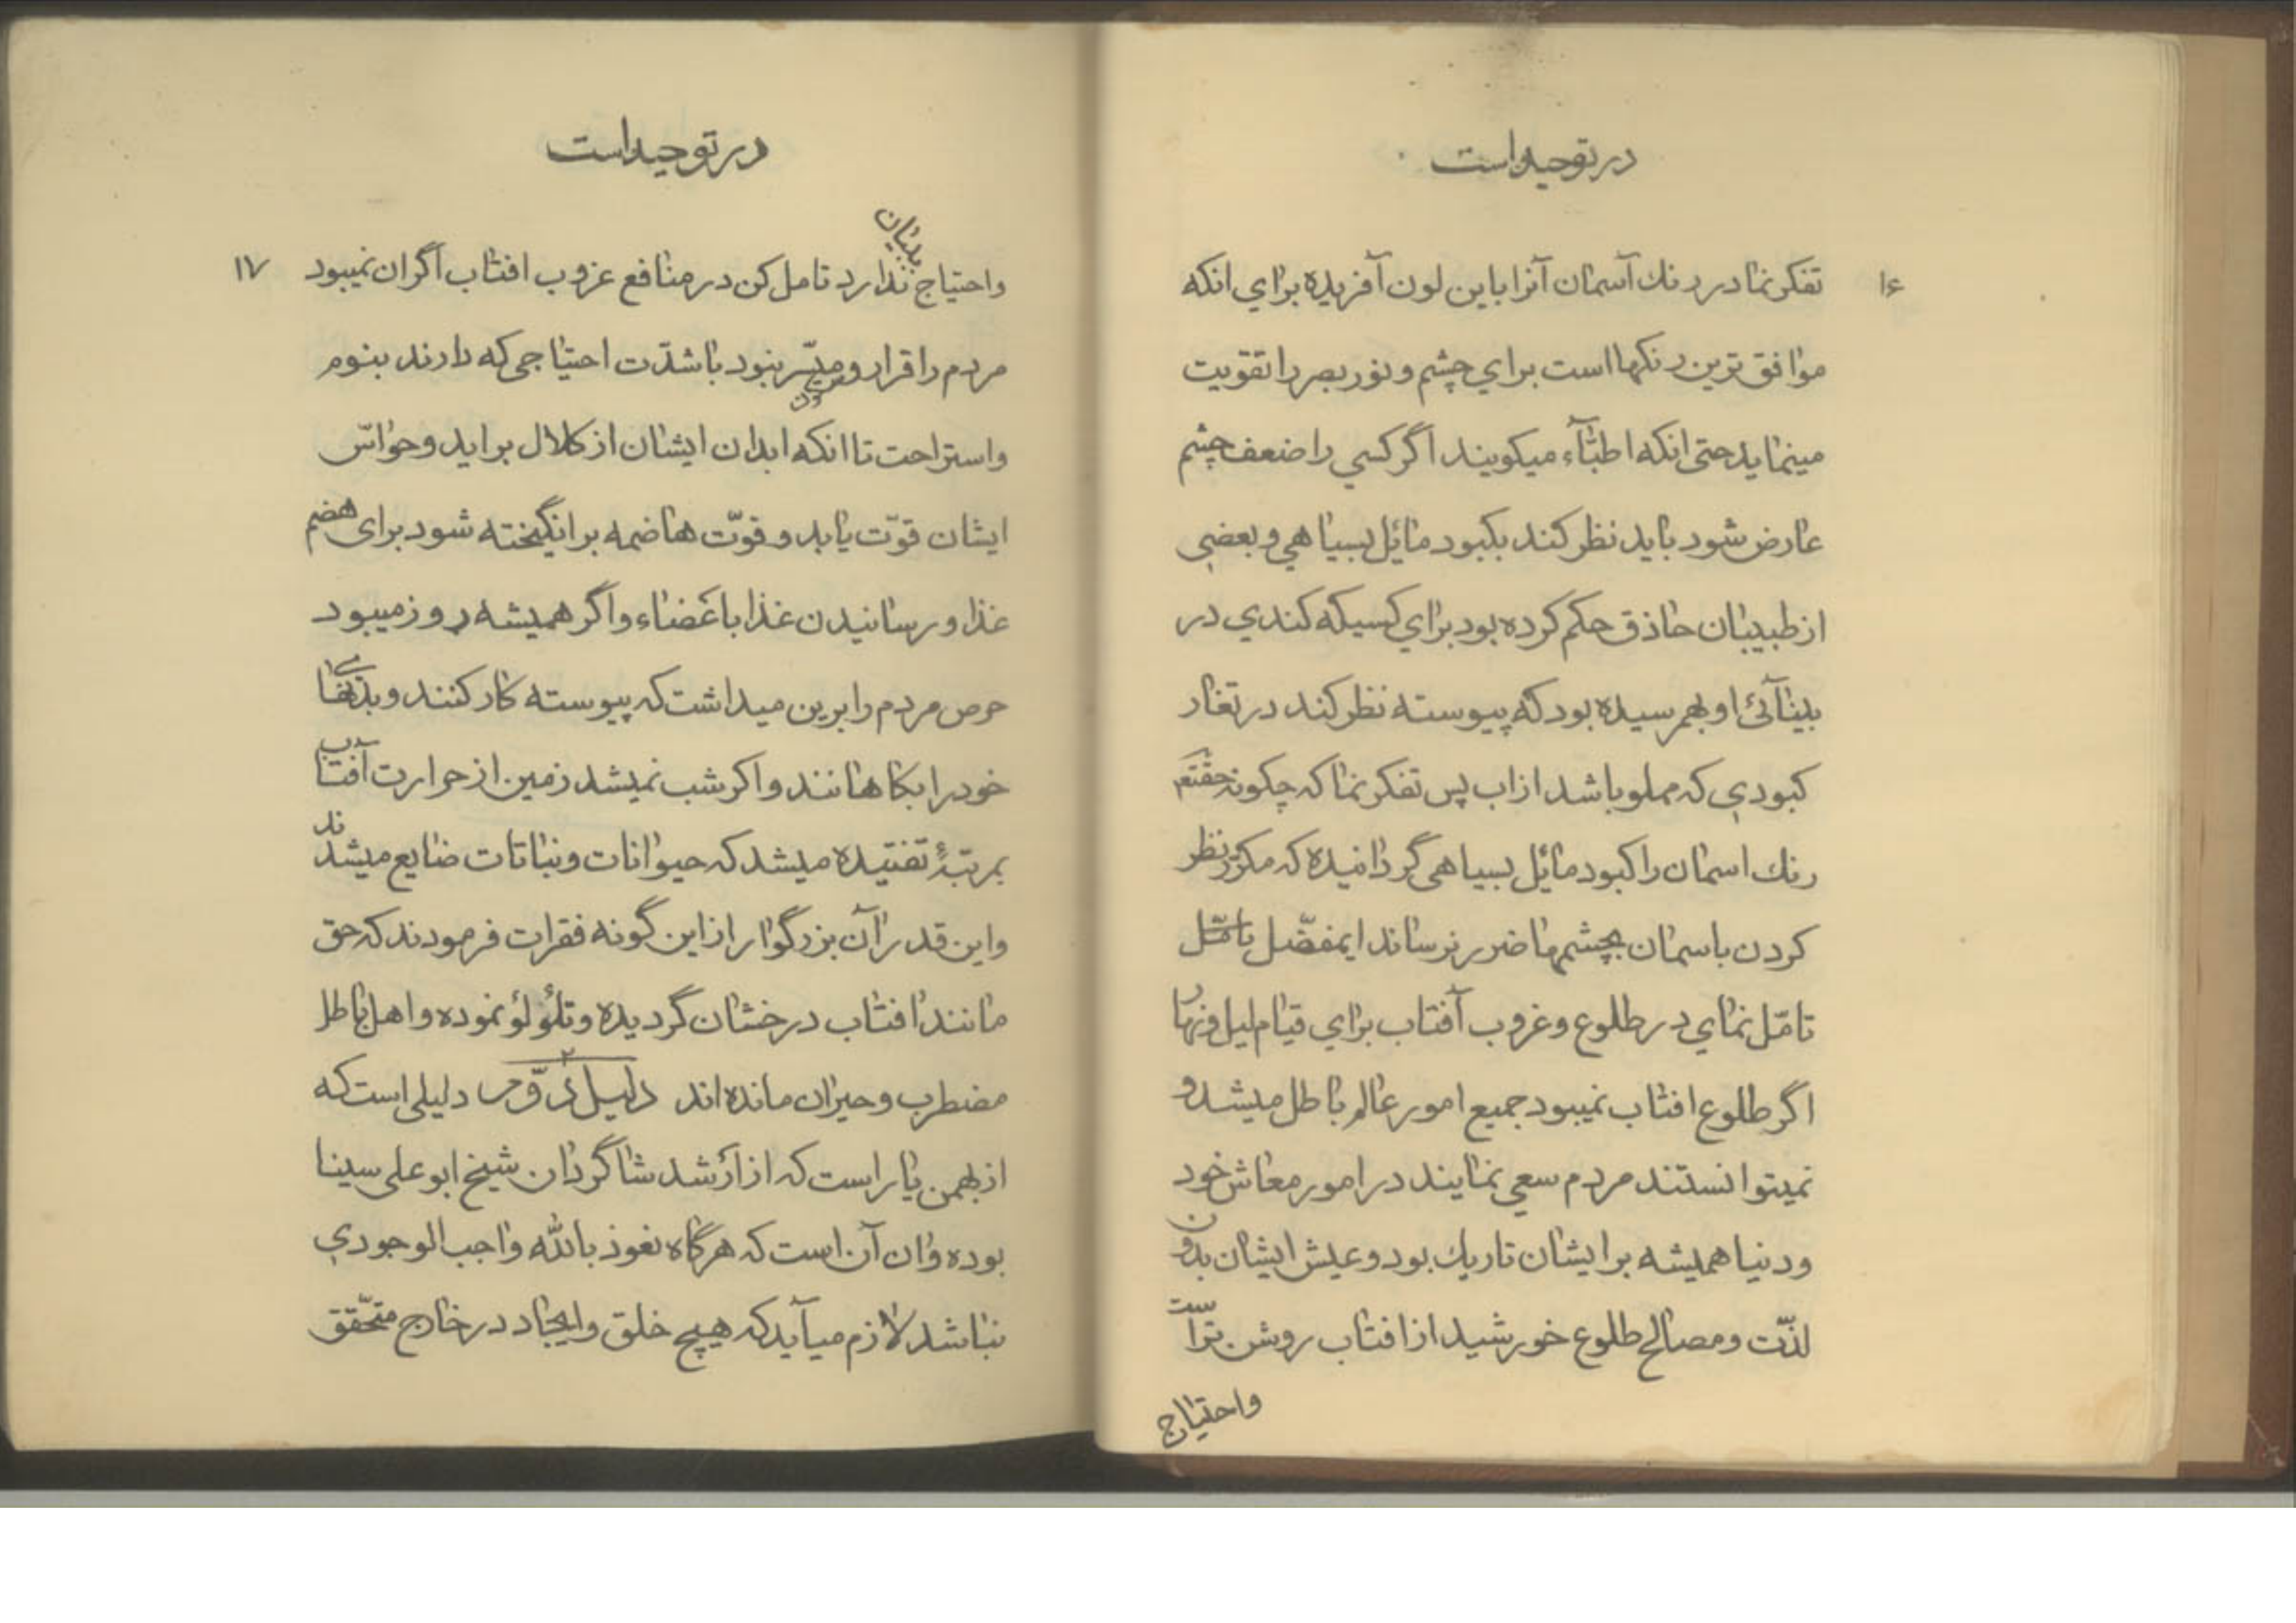 در توحید است
۱۶
تفکر نما در رنك آسمان آنرا باین لون آفریده برای انکه
موافق ترین رنکها است برای چشم و نور بصر را تقویت
مینماید حتی انکه اطبّآء میکویند اگر کسی را ضعف چشم
عارض شود باید نظر کند بکبود مائل بسیاهی و بعضی
از طبیبان حاذق حکم کرده بود برای کسیکه کندی در
بینآئی او بهم رسیده بود که پیوسته نظر کند در تغار
کبودی که مملو باشد از اب پس تفکر نما که چکونه حقتعم
رنك اسمان را کبود مائل بسیاهی گردانیده که مکرّر نظر
کردن باسمان بچشمها ضرر نرساند ایمفضّل تامّل
تامّل نمای در طلوع و غروب آفتاب برای قیام لیل و نهار
اگر طلوع افتاب نمیبود جمیع امور عالم باطل میشد و
نمیتوانستند مردم سعی نمایند در امور معاش خود
و دنیا همیشه بر ایشان تاریك بود و عیش ایشان بدون
لذّت و مصالح طلوع خورشید از افتاب روشن تراست
واحتیاج
در توحید است
۱۷
واحتیاج ببیان ندارد تامل کن در منافع غروب افتاب اگر ان نمیبود
مردم را قرار و میسّر نبود با شدّت احتیاجی که دارند بنوم
واستراحت تا انکه ابدان ایشان از کلال براید و حواسّ
ایشان قوّت یابد و قوّت هاضمه برانگیخته شود برای هضم
غذا و رسانیدن غذا باعضاء و اگر همیشه روز میبود
حرص مردم را برین میداشت که پیوسته کار کنند و بدنهای
خود را بکاهانند و اکر شب نمیشد زمین از حرارت آفتاب
بمرتبهٔ تفتیده میشد که حیوانات و نباتات ضایع میشدند
و این قدر آن بزرگوار از این گونه فقرات فرمودند که حق
مانند افتاب درخشان گردیده و تلؤلؤ نموده و اهل باطل
مضطرب و حیران مانده اند دلیل دوّم دلیلی است که
از بهمن یار است که از ارشد شاگردان شیخ ابو علی سینا
بوده و ان آن است که هرگاه نعوذ بالله واجب الوجودی
نباشد لازم میآید که هیچ خلق و ایجاد در خارج متحّقق